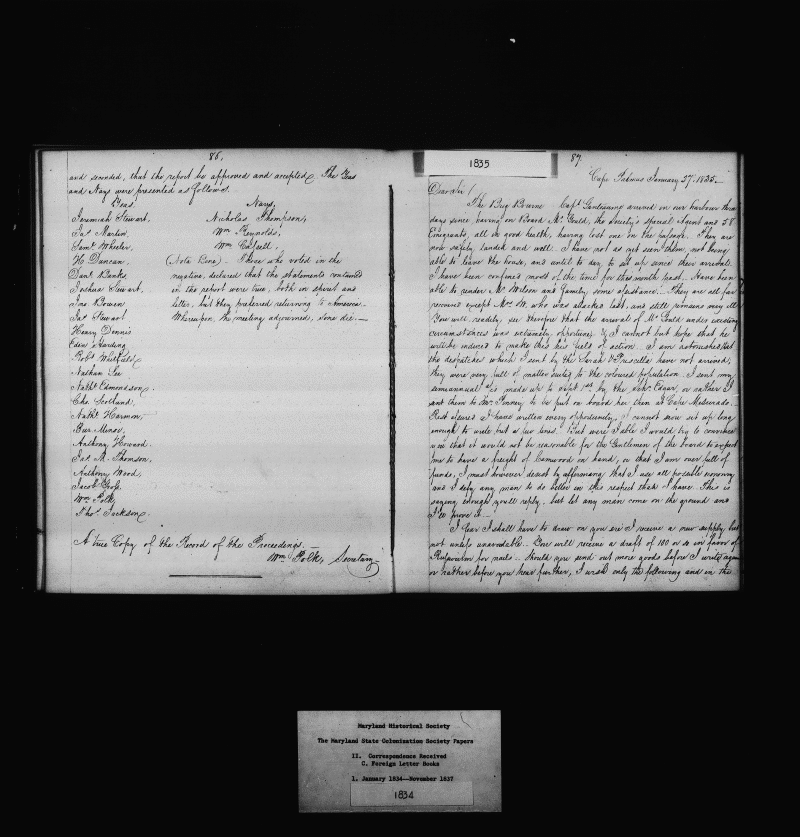 86.
and seconded, that the report be approved and accepted. The Yeas
and Nays were presented as follows.
Yeas Nays,
Jeremiah Stewart, Nicholas Thompson,
Jas Martin, Wm Reynolds,
Saml Wheeler, Wm Cassell,
H Duncan, (Nota Bene). Those who voted in the
Danl Banks negative, declared that the statements contained
Joshua Stewart. in the report were true, both in spirit and
Jno Bowen letter, but they preferred returning to America.
Jas Stewart Whereupon, the meeting adjourned, sine die.—
Henry Dennis
Eden Harding
Robt Whitfield
Nathan Lee
Nathl Edmondson.
Chs Scotland,
Nathl Harmon,
Bur Minor,
Anthony Howard.
Jas M. Thomson,
Anthony Wood,
Jacob Gross,
Wm Polk,
Thos Jackson.
A true Copy of the Record of the Proceedings.—
Wm Polk, Secretary—
1835
87.
Cape Palmas January 27. 1835.—
Dear Sir/
The Brig Bourne Capt Gantenning arrived in our harbour three
days since, having on Board Mr Gould, the Society's special Agent and 58
Emigrants, all in good health, having lost one on the passage. They are
now safely landed and well. I have not as yet seen them, not being
able to leave the house, and until to day to sit up since their arrival.
I have been confined most of the time for this month past. Have been
able to render Mr Wilson and family some assistance.— They are all far
recovered except Mrs W. who was attacked last, and still remains very ill.
You will readily see therefore that the arrival of Mr Gould under existing
circumstances was extremely opportune, & I cannot but hope that he
will be induced to make this his field of action. I am astonished that
the despatches which I sent by the Sarah & Priscilla have not arrived,
they were very full of matter relating to the coloured population. I sent my
semiannual a/c made up to Sept 1st by the Schr Edgar, or rather I
sent them to Mr Pinney to be put on board her then at Cape Mesurado.—
Rest assured I have written every opportunity, I cannot now set up long
enough to write but a few lines. But were I able I would try to convince
you that it would not be reasonable for the Gentlemen of the Board to expect
me to have a freight of Camwood in hand, or that I am over full of
funds, I must however desist by affirming that I use all possible economy
and I defy any man to do better in this respect than I have. This is
saying enough you'll reply, but let any man come on the ground and
I'll prove it.—
I fear I shall have to draw on you ere I receive a new supply, but
not unless unavoidable. You will receive a draft of 100 or so in favor of
for nails. Should you send out more goods before I write again
or rather before you hear further, I wish only the following and in the
Maryland Historical Society
The Maryland State Colonization Society Papers
II. Correspondence Received
C. Foreign Letter Books
1. January 1834--November 1837
1834